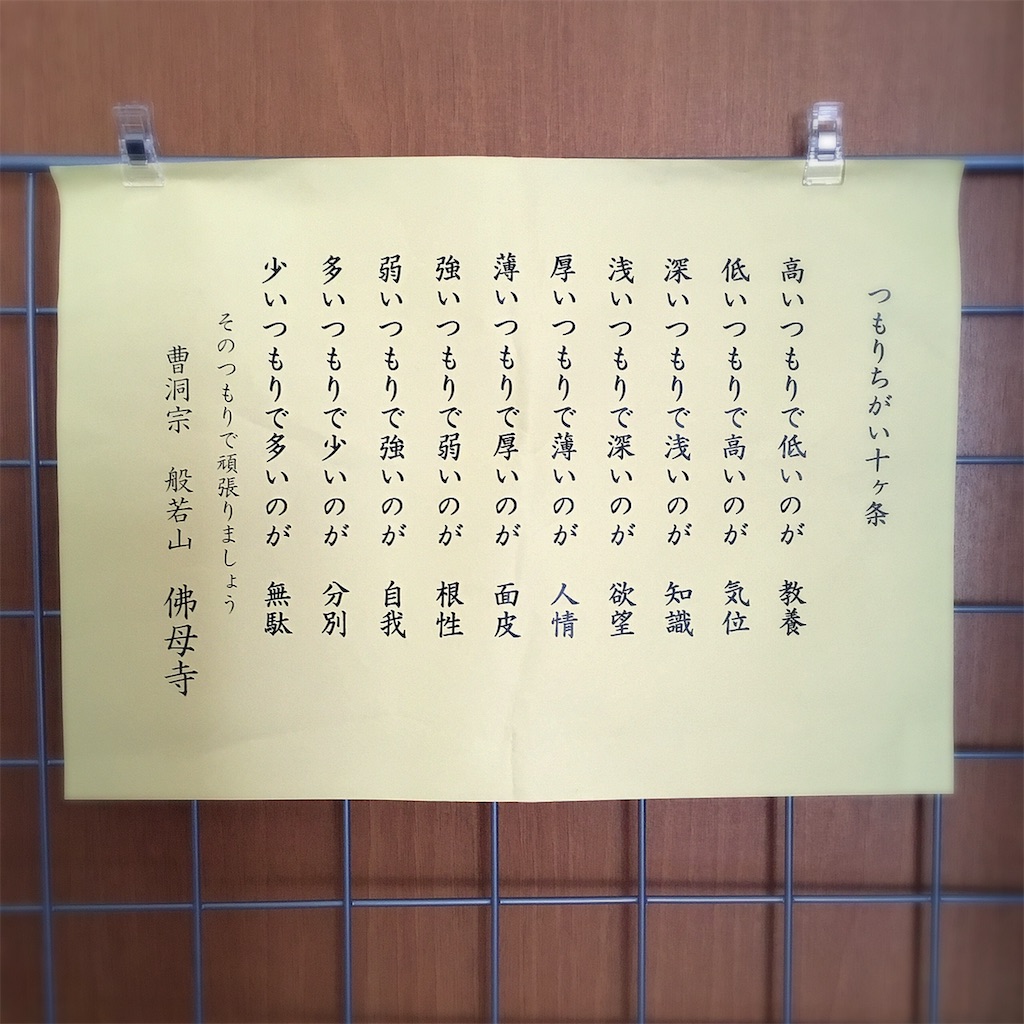 つもりちがい十ヶ条
高いつもりで低いのが　教養
低いつもりで高いのが　気位
深いつもりで浅いのが　知識
浅いつもりで深いのが　欲望
厚いつもりで薄いのが　人情
薄いつもりで厚いのが　面皮
強いつもりで弱いのが　根性
弱いつもりで強いのが　自我
多いつもりで少いのが　分別
少いつもりで多いのが　無駄
そのつもりで頑張りましょう
曹洞宗　般若山　佛母寺